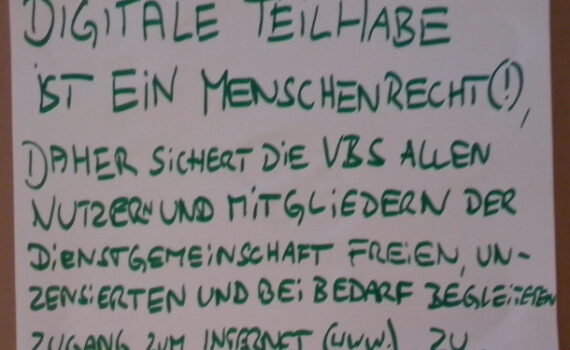 DIGITALE TEILHABE
IST EIN MENSCHENRECHT(!),
DAHER SICHERT DIE VBS ALLEN
NUTZERN UND MITGLIEDERN DER
DIENSTGEMEINSCHAFT FREIEN, UN-
ZENSIERTEN UND BEI BEDARF BEGLEITETEN
ZUGANG ZUM INTERNET (WWW.) ZU